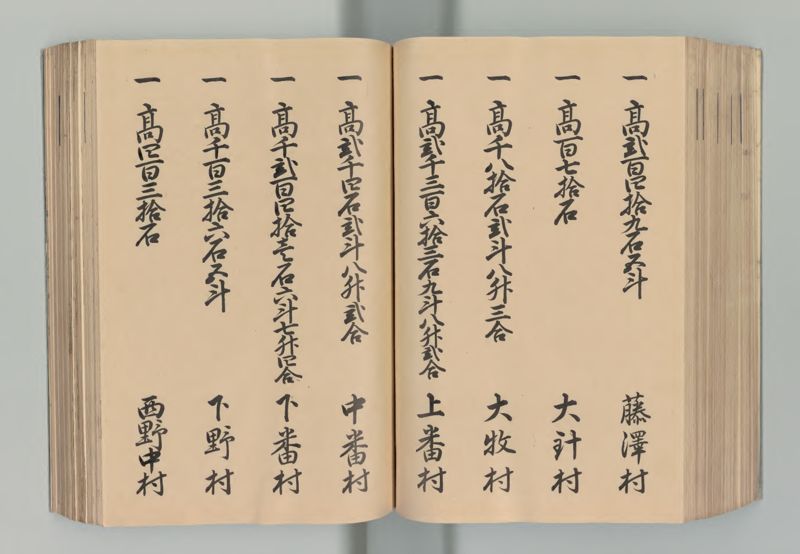 一 高弐百四拾九石五斗 藤澤村
一 高百七拾石 大針村
一 高千八拾石弐斗八升三合 大牧村
一 高弐千三百六拾三石九斗八升弐合 上番村
一 高弐千四石弐斗八升弐合 中番村
一 高千弐百四拾壱石六斗七升四合 下番村
一 高千百三拾六石五斗 下野村
一 高四百三拾石 西野中村